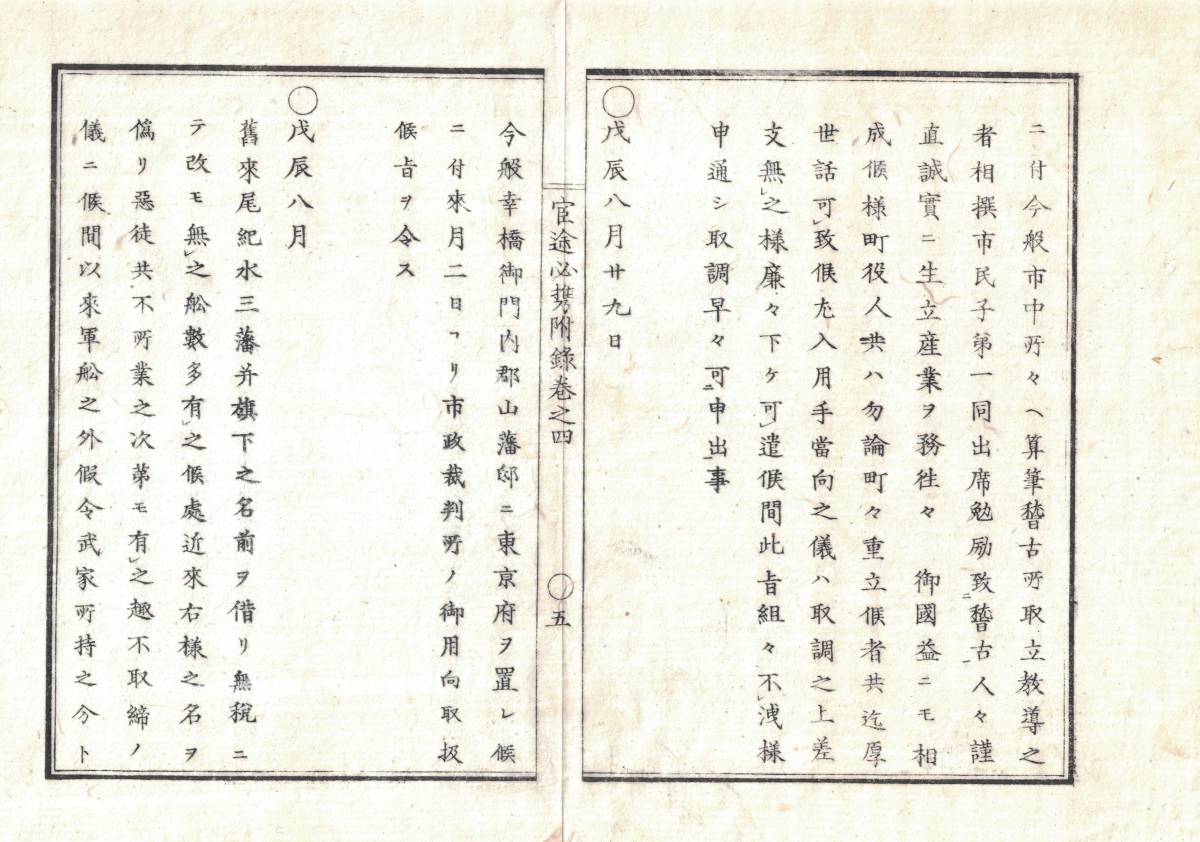 ニ付今般市中所々ヘ算筆稽古所取立教導之
者相撰市民子弟一同出席勉励致ニ稽古一人々謹
直誠實ニ生立産業ヲ務往々　御國益ニモ相
成候様町役人共ハ勿論町々重立候者共迄厚
世話可レ致候尤入用手當向之儀ハ取調之上差
支無レ之様廉々下ケ可レ遣候間此旨組々不レ洩様
申通シ取調早々可ニ申出一事
○
戊辰八月廿九日
官途必携附錄卷之四
○五
今般幸橋御門内郡山藩邸ニ東京府ヲ置レ候
ニ付來月二日ヨリ市政裁判所ノ御用向取扱
候旨ヲ令ス
○
戊辰八月
舊來尾紀水三藩并旗下之名前ヲ借リ無税ニ
テ改モ無レ之舩數多有レ之候處近來右様之名ヲ
僞リ惡徒共不所業之次第モ有レ之趣不取締ノ
儀ニ候間以來軍舩之外假令武家所持之分ト